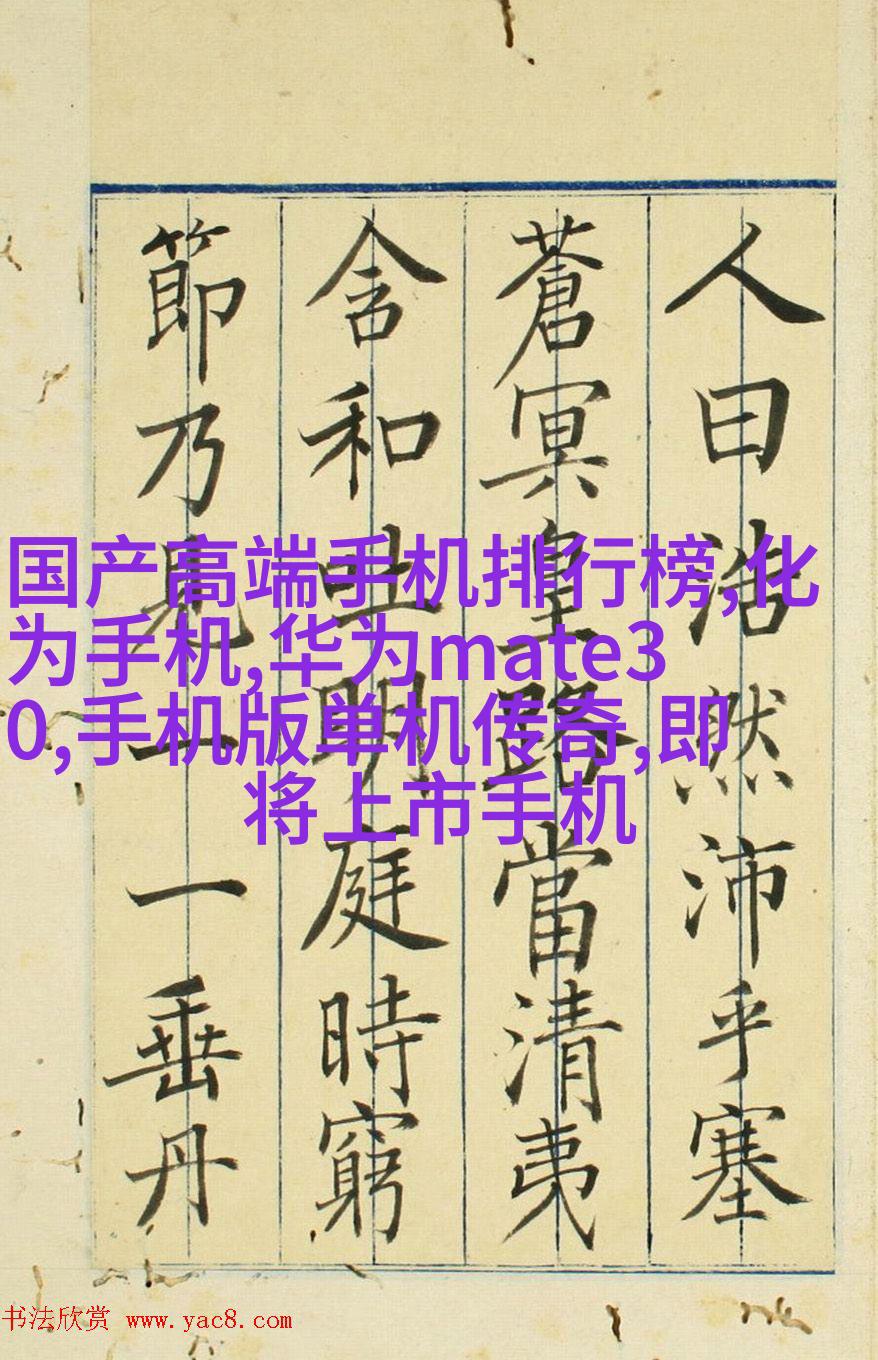 人曰浩然沛乎塞
蒼冥皇路當清夷
含和吐明庭時窮
節乃見一一垂丹
国产高端手机排行榜,化
为手机,华为mate3
0,手机版单机传奇,即
将上市手机
书法欣赏 www.yac8.com